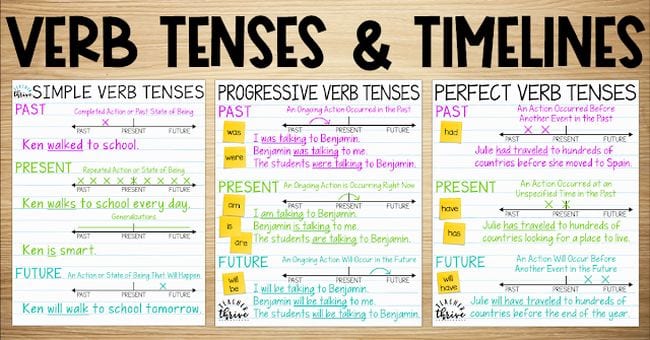 VERB TENSES & TIMELINES
SIMPLE VERB TENSES
PAST
Completed Action or Past State of Being
PAST PRESENT FUTURE
Ken walked to school.
PRESENT
Repeated Action or State of Being
PAST PRESENT FUTURE
Ken walks to school every day.
Generalizations
PAST PRESENT FUTURE
Ken is smart.
FUTURE
An Action or State of Being That Will Happen
PAST PRESENT FUTURE
Ken will walk to school tomorrow.
PROGRESSIVE VERB TENSES
PAST
An Ongoing Action Occurred in the Past
PAST PRESENT FUTURE
was
were
I was talking to Benjamin.
Benjamin was talking to me.
The students were talking to Benjamin.
PRESENT
An Ongoing Action is Occurring Right Now
PAST PRESENT FUTURE
am
is
are
I am talking to Benjamin.
Benjamin is talking to me.
The students are talking to Benjamin.
FUTURE
An Ongoing Action Will Occur in the Future
PAST PRESENT FUTURE
will
be
I will be talking to Benjamin.
Benjamin will be talking to me.
The students will be talking to Benjamin.
TEACHER
thrive
PERFECT VERB TENSES
PAST
An Action Occurred Before
Another Event in the Past
PAST PRESENT FUTURE
had
Julie had traveled to hundreds of
countries before she moved to Spain.
PRESENT
An Action Occurred at an
Unspecified Time in the Past
PAST PRESENT FUTURE
have
has
Julie has traveled to hundreds of
countries looking for a place to live.
FUTURE
An Action Will Occur Before
Another Event in the Future
PAST PRESENT FUTURE
will
have
Julie will have traveled to hundreds of
countries before the end of the year.
TEACHER
thrive